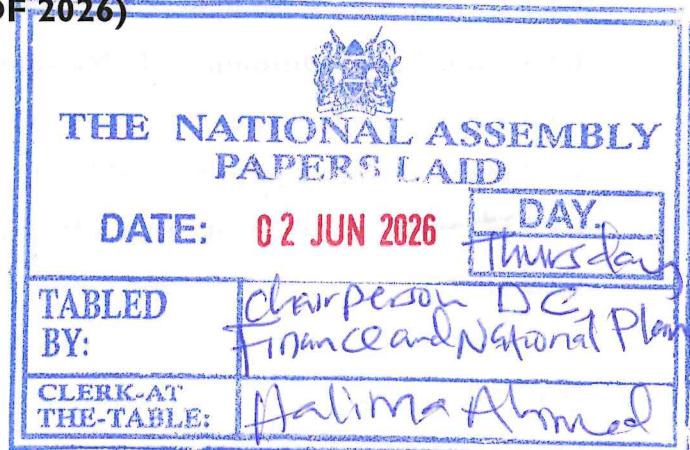 OF 2026)
THE NATIONAL ASSEMBLY
PAPERS LAID
DATE: 02 JUN 2026
DAY.
Thursday
TABLED BY:
Chairperson DC
Finance and National Plan
CLERK-AT THE-TABLE:
Halima Ahmed